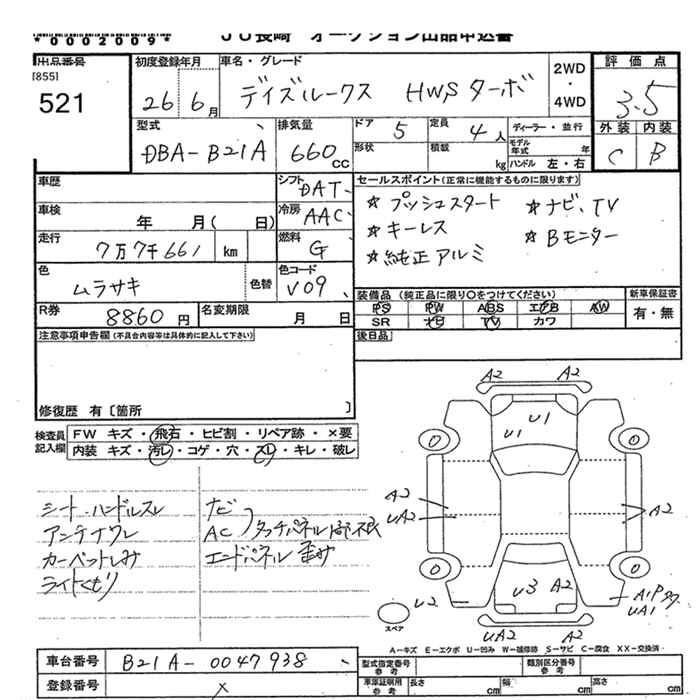 *0002009*
JU長崎 オークション出品申込書
出品番号
[855]
521
初度登録年月
26年 6月
車名・グレード
デイズルークス HWSターボ
2WD・4WD
評価点
3.5
外装 内装
C B
型式
DBA-B21A
排気量
660CC
ドア 5
形状
定員 4人
積載 kg
ディーラー・並行
モデル年式 年
ハンドル 左・右
車歴
車検 年 月( 日)
走行 7万7千661 km
色 ムラサキ 色替
シフト DAT
冷房 AAC
燃料 G
色コード V09
セールスポイント(正常に機能するものに限ります)
☆ プッシュスタート ☆ ナビ、TV
☆ キーレス ☆ Bモニター
☆ 純正アルミ
R券 8860円
名変期限 月 日
装備品 (純正品に限り○をつけてください)
PS PW ABS エアB AW
SR ナビ TV カワ
新車保証書
有・無
注意事項申告欄(不具合内容等は具体的に記入して下さい)
後日品
修復歴 有〔箇所 〕
検査員記入欄
FW キズ・飛石・ヒビ割・リペア跡・×要
内装 キズ・汚レ・コゲ・穴・スレ・キレ・破レ
シート・ハンドルスレ
アンテナワレ
カーペットしみ
ライトくもり
ナビ
AC タッチパネル
エンドパネル 歪み
A2 A2
U1
U1
A2
UA2
A2
U3 A2
U2
A1P
UA1
UA2 A2
スペア
A-キズ E-エクボ U-凹み W-補修跡 S-サビ C-腐食 XX-交換済
車台番号 B21A-0047938
登録番号 ×
型式指定番号 参考
類別区分番号 参考
車庫証明用 参考
長さ cm 幅 cm 高さ cm